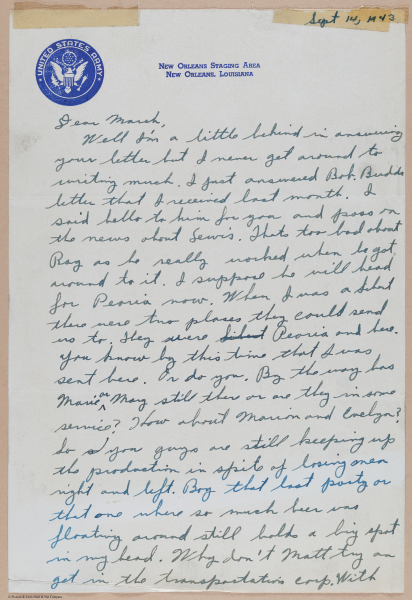 Sept 14, 1943
UNITED STATES ARMY
NEW ORLEANS STAGING AREA
NEW ORLEANS, LOUISIANA
Dear March,
Well I'm a little behind in answering
your letter but I never get around to
writing much. I just answered Bob. Budds
letter that I received last month. I
said hello to him for you and pass on
the news about Lewis. Thats too bad about
Ray as he really worked when he got
around to it. I suppose he will head
for Peoria now. When I was a
there were two places they could send
us to. They were Peoria and here.
You know by this time that I was
sent here. Or do you. By the way has
Marie or Mary still there or are they in some
service? How about Marion and Evelyn?
So you guys are still keeping up
the production in spite of losing men
right and left. Boy that last party or
that one where so much beer was
floating around still holds a big spot
in my head. Why don't Matt try an
get in the transportation corp. With